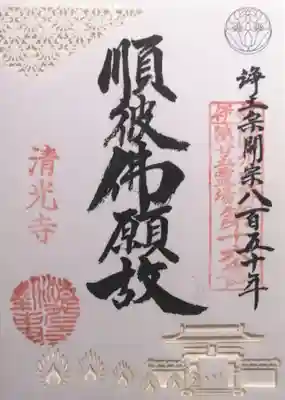 浄土宗開宗八百五十年
順彼佛願故
清光寺